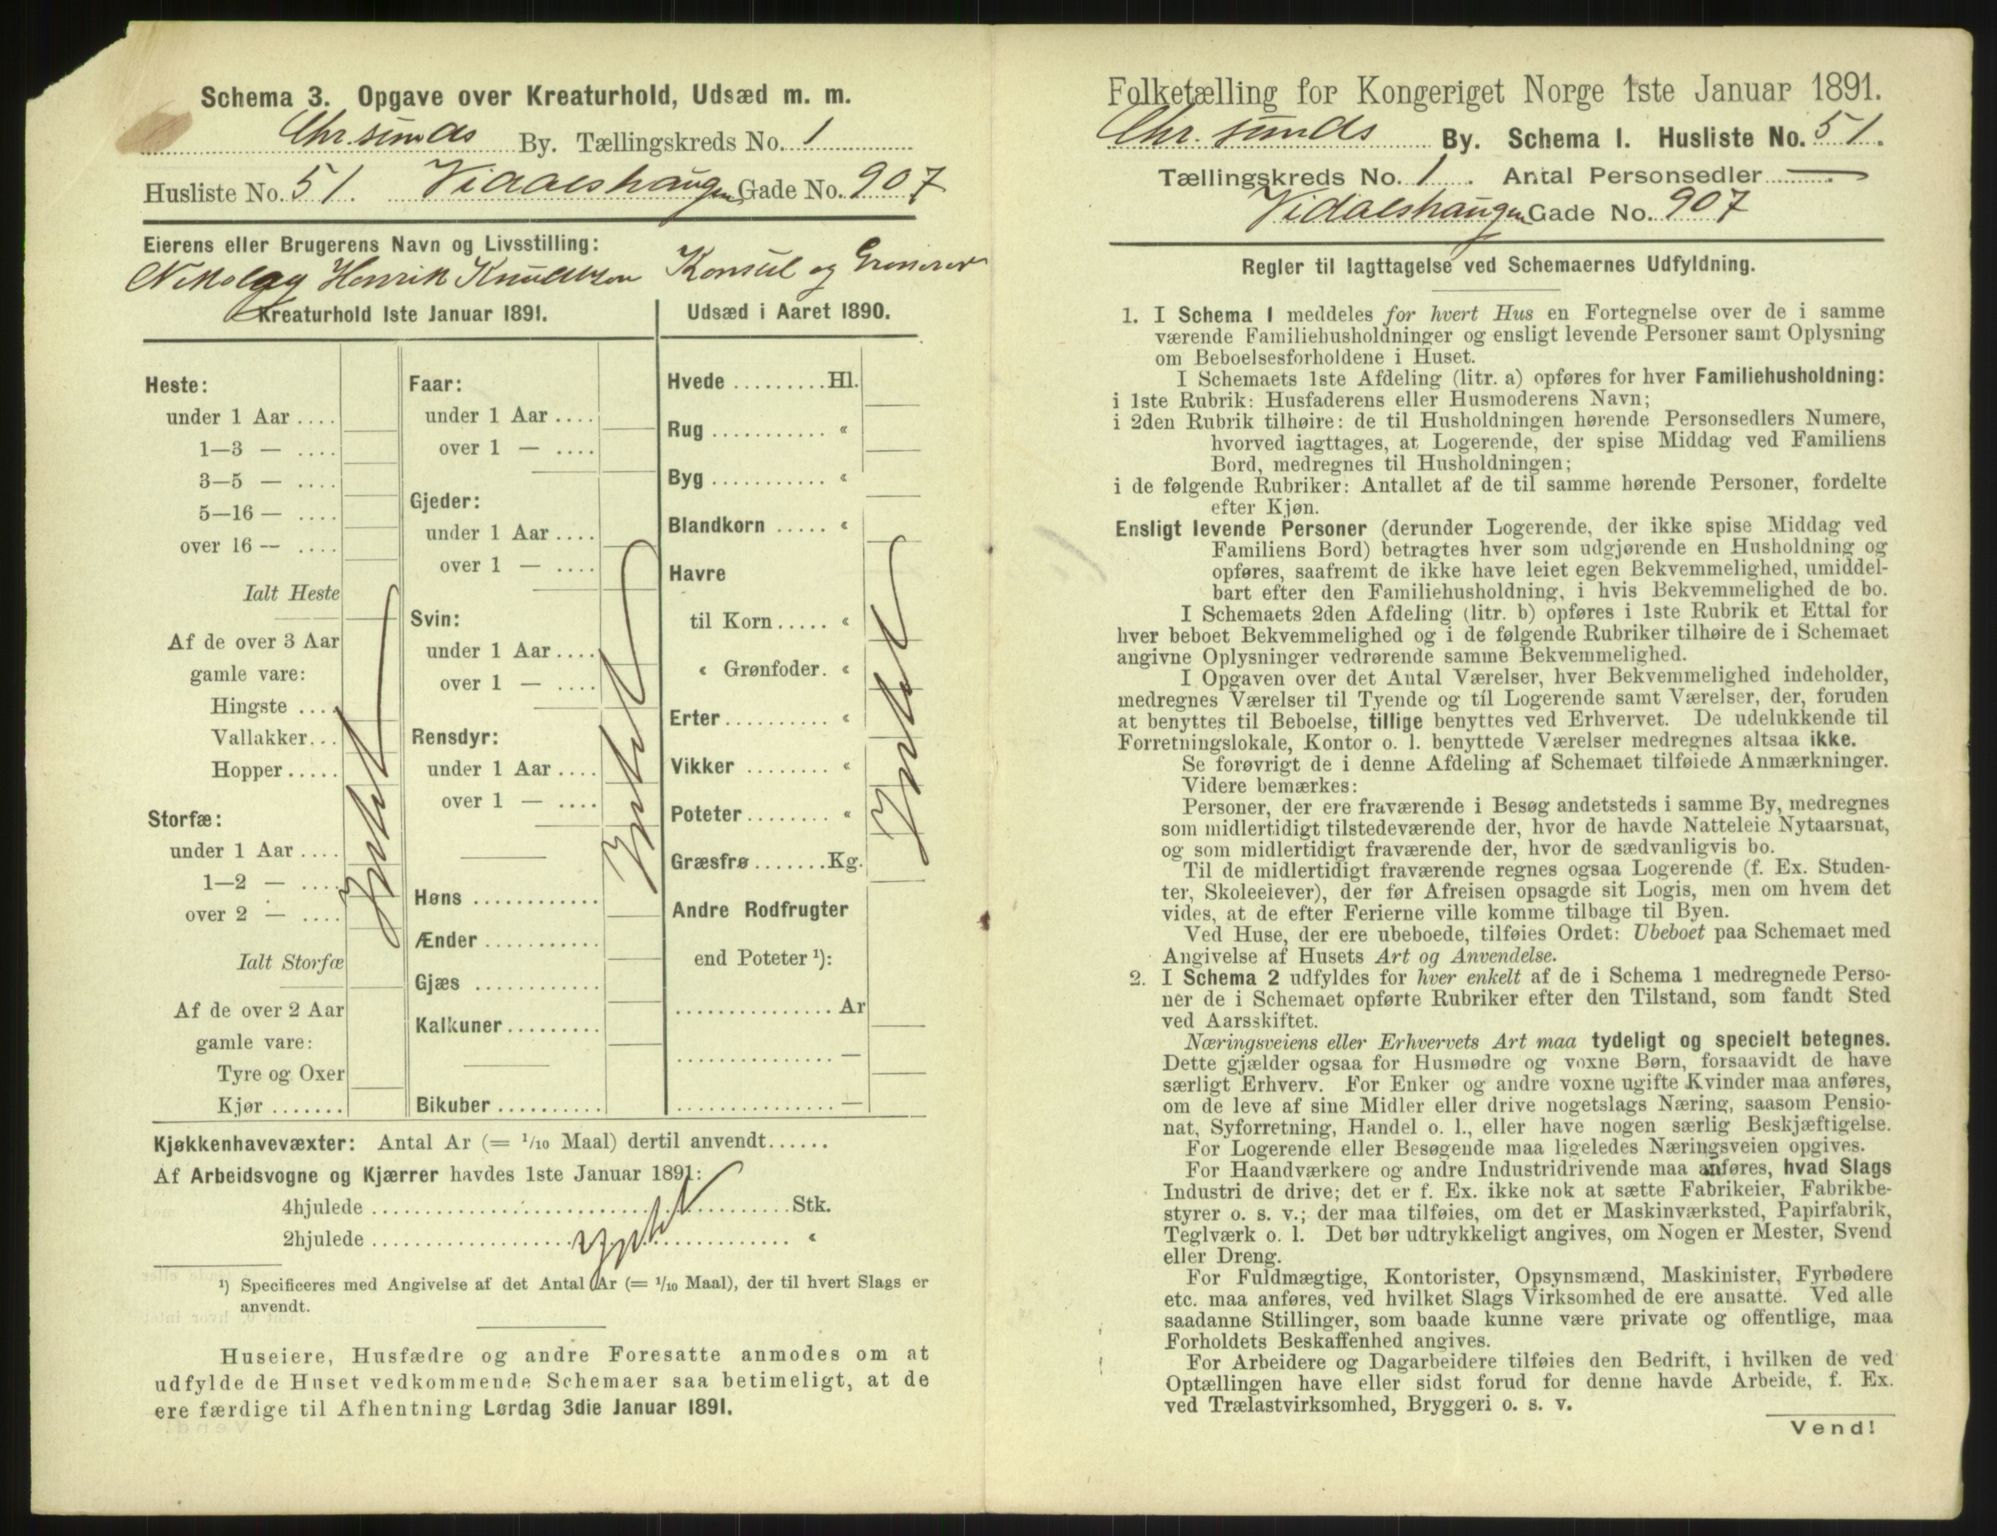 Schema 3. Opgave over Kreaturhold, Udsæd m. m.
Chr.sunds By. Tællingskreds No. 1
Husliste No. 51. Vidaleshaugen Gade No. 907
Eierens eller Brugerens Navn og Livsstilling:
Nikolay Henrik Knudtzon Konsul og Grosserer
Kreaturhold 1ste Januar 1891.
Heste:
under 1 Aar ....
1—3 — ....
3—5 — ....
5—16 — ....
over 16 — ....
Ialt Heste
Af de over 3 Aar
gamle vare:
Hingste ....
Vallakker...
Hopper.....
Storfæ:
under 1 Aar ....
1—2 — ....
over 2 — ....
Ialt Storfæ
Af de over 2 Aar
gamle vare:
Tyre og Oxer
Kjør .......
Intet
Faar:
under 1 Aar ....
over 1 — ....
Gjeder:
under 1 Aar ....
over 1 — ....
Svin:
under 1 Aar ....
over 1 — ....
Rensdyr:
under 1 Aar ....
over 1 — ....
Høns ............
Ænder ...........
Gjæs ............
Kalkuner.........
Bikuber ..........
Intet
Udsæd i Aaret 1890.
Hvede .........Hl.
Rug ........... «
Byg ........... «
Blandkorn ..... «
Havre
til Korn ..... «
« Grønfoder. «
Erter .......... «
Vikker ........ «
Poteter ........ «
Græsfrø .......Kg.
Andre Rodfrugter
end Poteter ¹):
............... Ar
............... —
............... —
Intet
Kjøkkenhavevæxter: Antal Ar (= 1/10 Maal) dertil anvendt......
Af Arbeidsvogne og Kjærrer havdes 1ste Januar 1891:
4hjulede ........................................ Stk.
2hjulede ........................................ «
Intet
¹) Specificeres med Angivelse af det Antal Ar (= 1/10 Maal), der til hvert Slags er
anvendt.
Huseiere, Husfædre og andre Foresatte anmodes om at
udfylde de Huset vedkommende Schemaer saa betimeligt, at de
ere færdige til Afhentning Lørdag 3die Januar 1891.
Folketælling for Kongeriget Norge 1ste Januar 1891.
Chr.sunds By. Schema 1. Husliste No. 51.
Tællingskreds No. 1. Antal Personsedler —.
Vidaleshaugen Gade No. 907
Regler til Iagttagelse ved Schemaernes Udfyldning.
1. I Schema 1 meddeles for hvert Hus en Fortegnelse over de i samme
værende Familiehusholdninger og ensligt levende Personer samt Oplysning
om Beboelsesforholdene i Huset.
I Schemaets 1ste Afdeling (litr. a) opføres for hver Familiehusholdning:
i 1ste Rubrik: Husfaderens eller Husmoderens Navn;
i 2den Rubrik tilhøire: de til Husholdningen hørende Personsedlers Numere,
hvorved iagttages, at Logerende, der spise Middag ved Familiens
Bord, medregnes til Husholdningen;
i de følgende Rubriker: Antallet af de til samme hørende Personer, fordelte
efter Kjøn.
Ensligt levende Personer (derunder Logerende, der ikke spise Middag ved
Familiens Bord) betragtes hver som udgjørende en Husholdning og
opføres, saafremt de ikke have leiet egen Bekvemmelighed, umiddel-
bart efter den Familiehusholdning, i hvis Bekvemmelighed de bo.
I Schemaets 2den Afdeling (litr. b) opføres i 1ste Rubrik et Ettal for
hver beboet Bekvemmelighed og i de følgende Rubriker tilhøire de i Schemaet
angivne Oplysninger vedrørende samme Bekvemmelighed.
I Opgaven over det Antal Værelser, hver Bekvemmelighed indeholder,
medregnes Værelser til Tyende og til Logerende samt Værelser, der, foruden
at benyttes til Beboelse, tillige benyttes ved Erhvervet. De udelukkende til
Forretningslokale, Kontor o. l. benyttede Værelser medregnes altsaa ikke.
Se forøvrigt de i denne Afdeling af Schemaet tilføiede Anmærkninger.
Videre bemærkes:
Personer, der ere fraværende i Besøg andetsteds i samme By, medregnes
som midlertidigt tilstedeværende der, hvor de havde Natteleie Nytaarsnat,
og som midlertidigt fraværende der, hvor de sædvanligvis bo.
Til de midlertidigt fraværende regnes ogsaa Logerende (f. Ex. Studen-
ter, Skoleelever), der før Afreisen opsagde sit Logis, men om hvem det
vides, at de efter Ferierne ville komme tilbage til Byen.
Ved Huse, der ere ubeboede, tilføies Ordet: Ubeboet paa Schemaet med
Angivelse af Husets Art og Anvendelse.
2. I Schema 2 udfyldes for hver enkelt af de i Schema 1 medregnede Perso-
ner de i Schemaet opførte Rubriker efter den Tilstand, som fandt Sted
ved Aarsskiftet.
Næringsveiens eller Erhvervets Art maa tydeligt og specielt betegnes.
Dette gjælder ogsaa for Husmødre og voxne Børn, forsaavidt de have
særligt Erhverv. For Enker og andre voxne ugifte Kvinder maa anføres,
om de leve af sine Midler eller drive nogetslags Næring, saasom Pensio-
nat, Syforretning, Handel o. l., eller have nogen særlig Beskjæftigelse.
For Logerende eller Besøgende maa ligeledes Næringsveien opgives.
For Haandværkere og andre Industridrivende maa anføres, hvad Slags
Industri de drive; det er f. Ex. ikke nok at sætte Fabrikeier, Fabrikbe-
styrer o. s. v.; der maa tilføies, om det er Maskinværksted, Papirfabrik,
Teglværk o. l. Det bør udtrykkeligt angives, om Nogen er Mester, Svend
eller Dreng.
For Fuldmægtige, Kontorister, Opsynsmænd, Maskinister, Fyrbødere
etc. maa anføres, ved hvilket Slags Virksomhed de ere ansatte. Ved alle
saadanne Stillinger, som baade kunne være private og offentlige, maa
Forholdets Beskaffenhed angives.
For Arbeidere og Dagarbeidere tilføies den Bedrift, i hvilken de ved
Optællingen have eller sidst forud for denne havde Arbeide, f. Ex.
ved Trælastvirksomhed, Bryggeri o. s. v.
Vend!